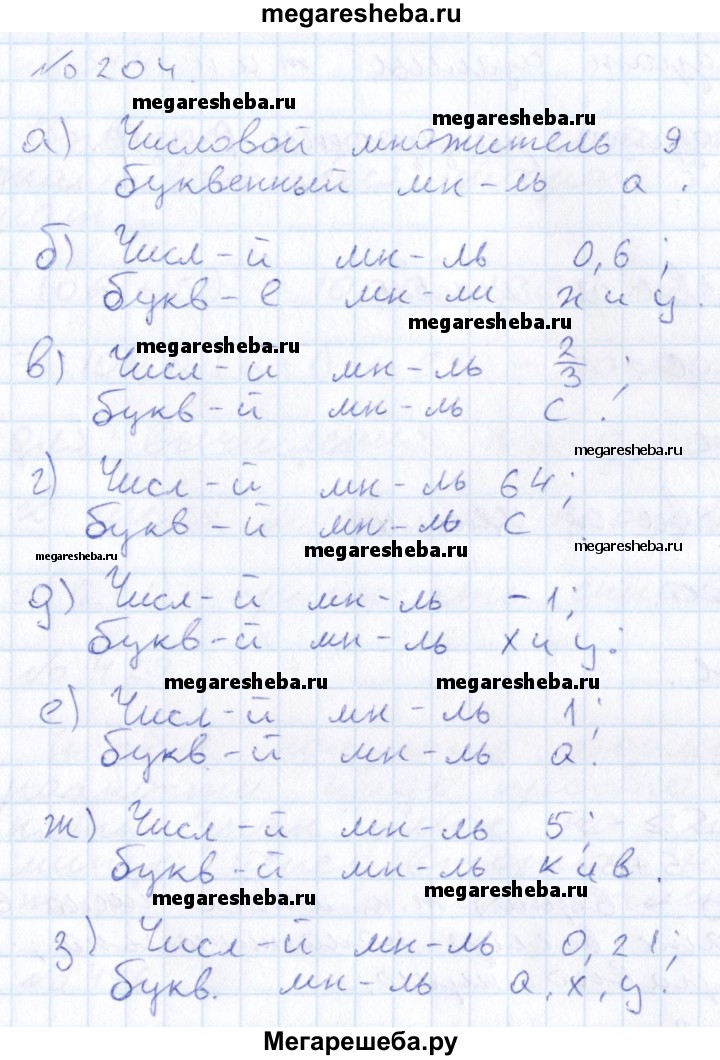 megaresheba.ru
№ 204.
megaresheba.ru
megaresheba.ru
а) Числовой множитель 9
буквенный мн-ль а.
б) Числ-й мн-ль 0,6;
букв-е мн-ли х и у.
megaresheba.ru
megaresheba.ru
в) Числ-й мн-ль 2/3;
букв-й мн-ль с.
megaresheba.ru
г) Числ-й мн-ль 64;
букв-й мн-ль с.
megaresheba.ru
megaresheba.ru
megaresheba.ru
д) Числ-й мн-ль -1;
букв-й мн-ль х и у.
megaresheba.ru
megaresheba.ru
е) Числ-й мн-ль 1;
букв-й мн-ль а.
ж) Числ-й мн-ль 5;
букв-й мн-ль к и в.
megaresheba.ru
megaresheba.ru
з) Числ-й мн-ль 0,21;
букв. мн-ль а, х, у.
Мегарешеба.ру